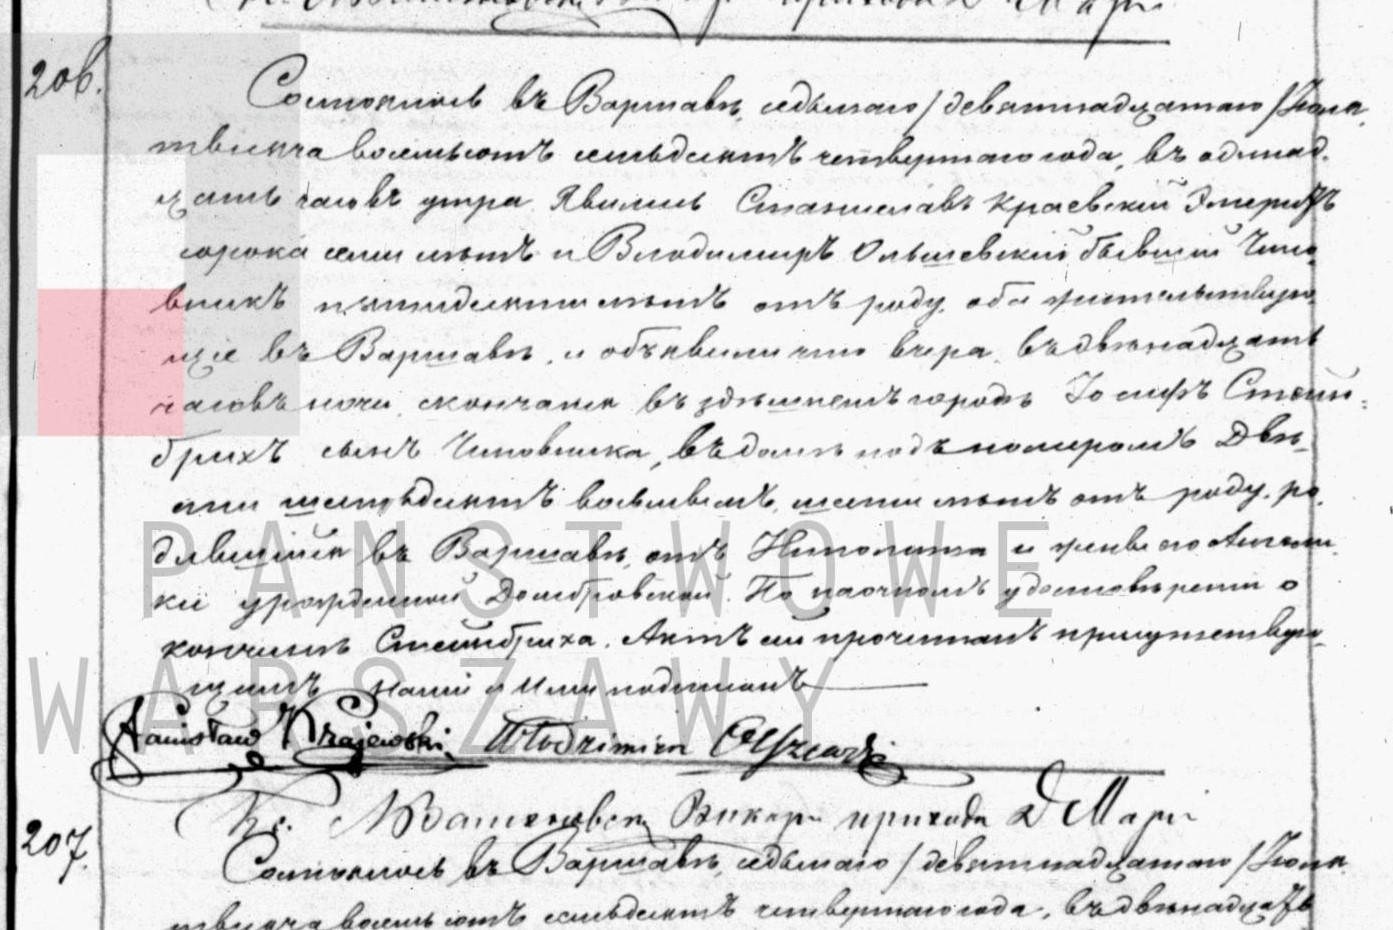 206.
Состоялось въ Варшавѣ, седьмаго /девятнадцатаго/ Іюля,
тысяча восемьсотъ семьдесятъ четвертаго года, въ одинад-
цать часовъ утра. Явились Станиславъ Краевскій Эмеритъ
сорока семи лѣтъ и Владимиръ Ольшевскій бывшій Чино-
вникъ пятидесяти лѣтъ отъ роду, оба жительствую-
щіе въ Варшавѣ, и объявили что вчера, въ двѣнадцать
часовъ ночи, скончался въ здѣшнемъ городѣ Іосифъ Стейн-
брихъ сынъ Чиновника, въ домѣ подъ номеромъ Двѣ-
сти шестьдесятъ восьмымъ, шести лѣтъ отъ роду, ро-
дившійся въ Варшавѣ, отъ Ипполита и жены его Ангели-
ки урожденной Домбровской. По наочномъ удостовѣреніи о
кончинѣ Стейнбриха, Актъ сей прочитанъ присутствую-
щимъ Нами и Ими подписанъ
Stanisław Krajewski Włodzimierz Olszewski
Кс. Викарі прихода Д Марі
207.
Состоялось въ Варшавѣ, седьмаго /девятнадцатаго/ Іюля
тысяча восемьсотъ семьдесятъ четвертаго года, въ двѣнадцать
PAŃSTWOWE
WARSZAWY